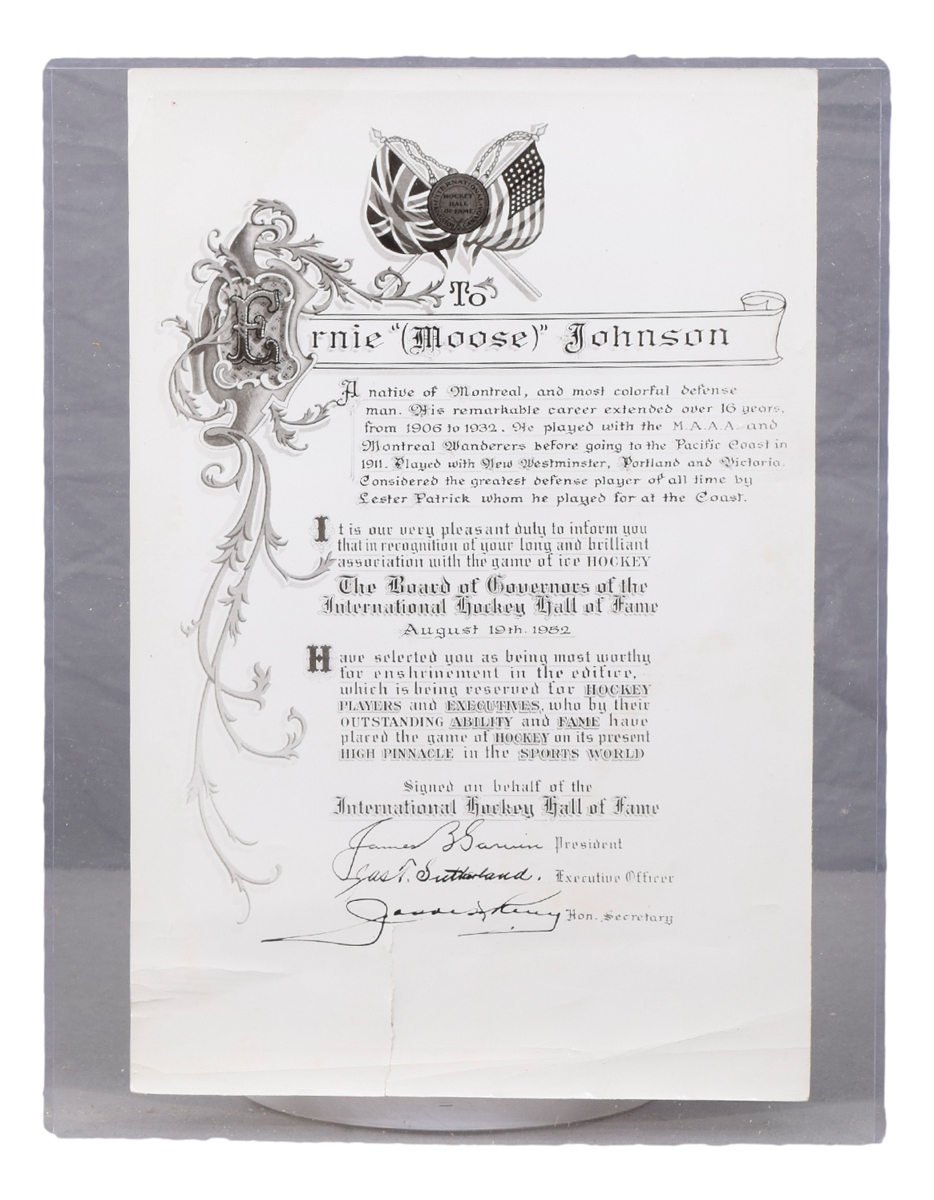 INTERNATIONAL
HOCKEY
HALL
OF FAME
To
Ernie "(Moose)" Johnson
A native of Montreal, and most colorful defense
man. His remarkable career extended over 16 years,
from 1906 to 1932. He played with the M.A.A.A. and
Montreal Wanderers before going to the Pacific Coast in
1911. Played with New Westminster, Portland and Victoria.
Considered the greatest defense player of all time by
Lester Patrick whom he played for at the Coast.
It is our very pleasant duty to inform you
that in recognition of your long and brilliant
association with the game of ice HOCKEY
The Board of Governors of the
International Hockey Hall of Fame
August 19th. 1952
Have selected you as being most worthy
for enshrinement in the edifice,
which is being reserved for HOCKEY
PLAYERS and EXECUTIVES, who by their
OUTSTANDING ABILITY and FAME have
placed the game of HOCKEY on its present
HIGH PINNACLE in the SPORTS WORLD
Signed on behalf of the
International Hockey Hall of Fame
James B Garvin President
Jas T. Sutherland. Executive Officer
Hon. Secretary